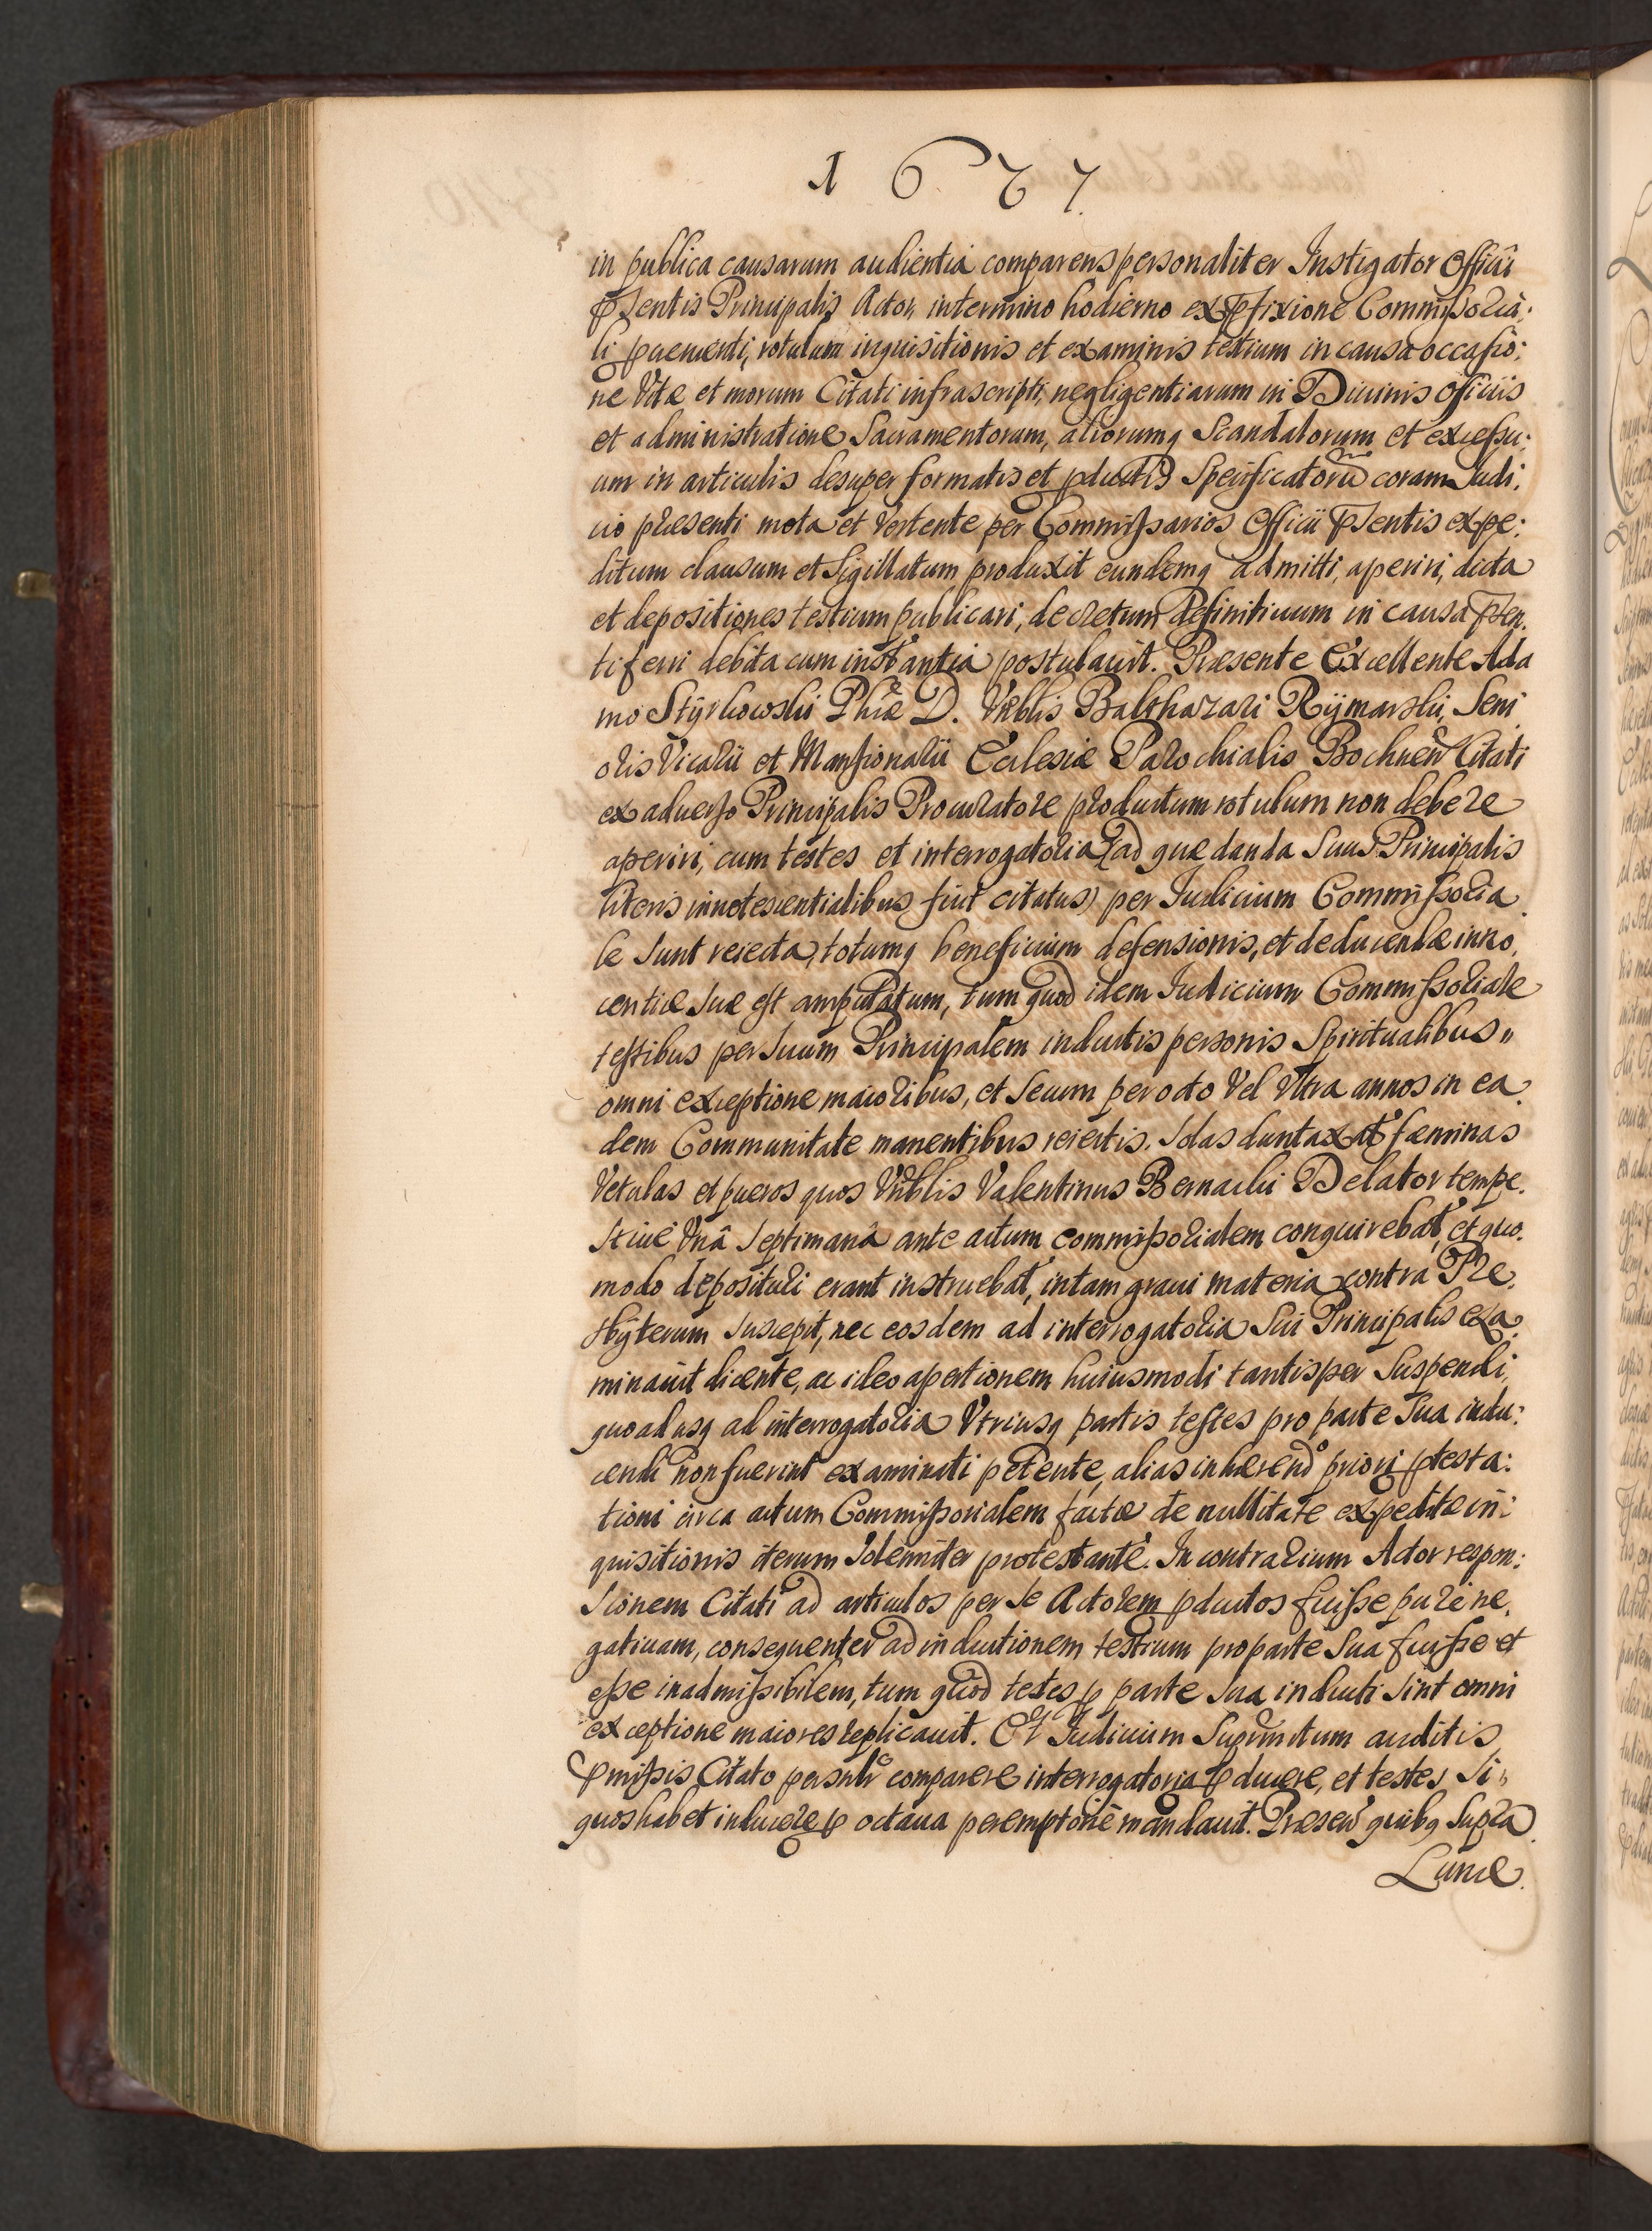 1677.
in publica causarum audientia comparens personaliter Instigator Officii
Psentis Principalis Actor, in termino hodierno ex Pfixione Commissoria:
li puenienti, rotulum inquisitionis et examinis testium in causa occasio:
ne Vitæ et morum Citati infrascripti, negligentiarum in Diuinis Officiis
et administratione Sacramentorum, aliorumq Scandalorum et excessu:
um in articulis desuper formatis et pductis Specificatorũ coram Judi:
cio præsenti mota et Vertente per Commissarios Officii Psentis expe:
ditum clausum et Sigillatum produxit eundemq admitti, aperiri, dicta
et depositiones testium publicari, decretum Definitiuum in causa Psen.
ti ferri debita cum instantia postulauit. Præsente Excellente Ada
mo Styrkowski Phiæ D. Vrblis Balthazari Rymarski, Seni
oris Vicarii et Mansionarii Ecclesiæ Parochialis Bochneñ Citati
ex aduerso Principalis Procuratore productum rotulum non debere
aperiri, cum testes et interrogatoria (ad quæ danda Suus Principalis
literis innotescentialibus fuit citatus) per Judicium Commissoria
le sunt reiecta, totumq beneficium defensionis, et deducendæ inno.
centiæ suæ est amputatum, tum quod idem Judicium Commissoriale
testibus per suum Principalem inductis personis Spiritualibus"
omni exceptione maioribus, et Secum per octo Vel Vltra annos in ea
dem Communitate manentibus reiectis. Solas duntaxat fæminas
Vetulas et pueros quos Vrblis Valentinus Bernacki Delator tempe.
stiue Vnâ Septimanâ ante actum commissorialem conquirebat, et quo.
modo deposituri erant instruebat, in tam graui materia contra Præ.
sbyterum suscepit, nec eosdem ad interrogatoria Sui Principalis exa.
minauit dicente, ac ideo apertionem huiusmodi tantisper Suspendi,
quoadusq ad interrogatoria Vtriusq partis testes pro parte Sua indu:
cendi non fuerint examinati petente, alias inhærendo priori ptesta:
tioni circa actum Commissorialem factæ de nullitate expeditæ in:
quisitionis iterum Solemniter protestante. In contrarium Actor respon:
sionem Citati ad articulos per se Actorem pductos fuisse pure ne,
gatiuam, consequenter ad inductionem testium pro parte Sua fuisse et
esse inadmissibilem, tum quod testes p parte sua inducti sint omni
exceptione maiores replicauit. Et Judicium Suprmtum auditis
Pmissis Citato personlr comparere interrogatoria pducere, et testes si"
quos habet inducere p octaua peremptoriè mandauit. Præseñ quibq Supra
Lunæ.